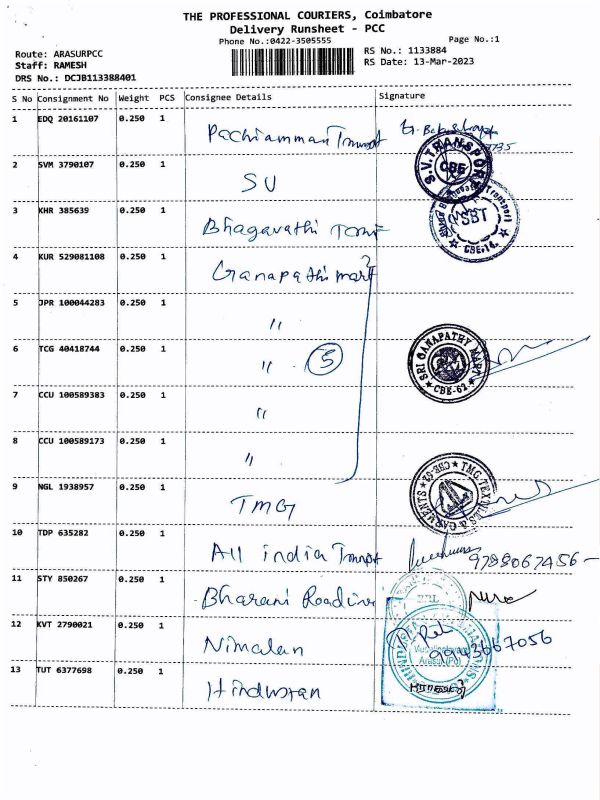 THE PROFESSIONAL COURIERS, Coimbatore
Delivery Runsheet - PCC
Phone No.:0422-3505555
Page No.:1
Route: ARASURPCC
RS No.: 1133884
Staff: RAMESH
RS Date: 13-Mar-2023
DRS No.: DCJB113388401
S No Consignment No Weight PCS Consignee Details Signature
1 EDQ 20161107 0.250 1 Pachiamman
2 SVM 3790107 0.250 1 SV
S.V. TRANSPORT CBE
3 KHR 385639 0.250 1 Bhagavathi
SBT CBE-14.
4 KUR 529081108 0.250 1 Ganapathi mart
5 JPR 100044283 0.250 1 "
6 TCG 40418744 0.250 1 " 5
SRI GANAPATHY MART CBE-62
7 CCU 100589383 0.250 1 "
8 CCU 100589173 0.250 1 "
9 NGL 1938957 0.250 1 TMG
TMG TEXTILES & GARMENTS CBE-62
10 TDP 635282 0.250 1 All india
9788067456
11 STY 850267 0.250 1 Bharani
12 KVT 2790021 0.250 1 Nimalan
9943667056
Arasur (Po)
13 TUT 6377698 0.250 1 Hindustan